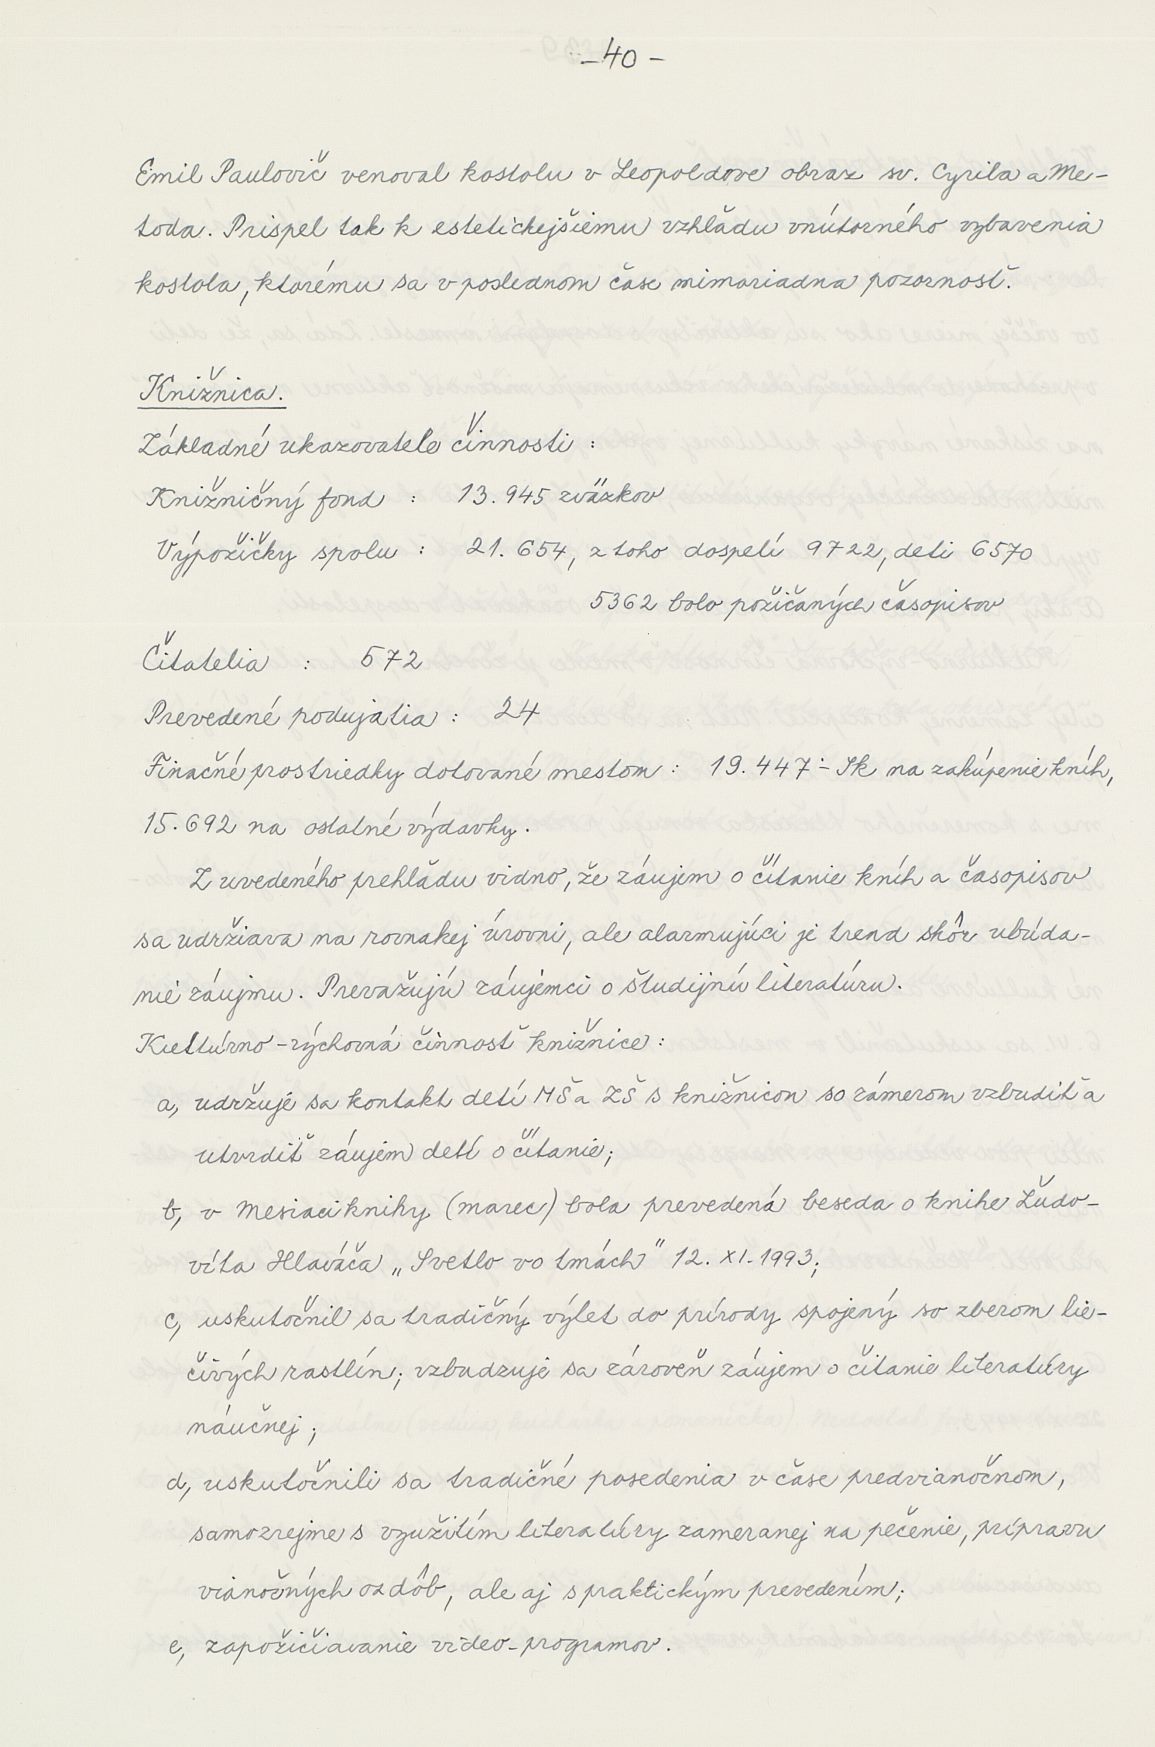 -40-
Emil Paulovič venoval kostolu v Leopoldove obraz sv. Cyrila a Me-
toda. Prispel tak k estetickejšiemu vzhľadu vnútorného vybavenia
kostola, ktorému sa v poslednom čase mimoriadna pozornosť.
Knižnica.
Základné ukazovatele činnosti :
Knižničný fond : 13.945 zväzkov
Výpožičky spolu : 21.654, z toho dospelí 9722, deti 6570
5362 bolo požičaných časopisov
Čitatelia : 572
Prevedené podujatia : 24
Finačné prostriedky dotované mestom : 19.447.- Sk na zakúpenie kníh,
15.692 na ostatné výdavky.
Z uvedeného prehľadu vidno, že záujem o čítanie kníh a časopisov
sa udržiava na rovnakej úrovni, ale alarmujúci je trend skôr ubúda-
nie záujmu. Prevažujú záujemci o študijnú literatúru.
Kultúrno-výchovná činnosť knižnice:
a, udržuje sa kontakt detí MŠ a ZŠ s knižnicou so zámerom vzbudiť a
utvrdiť záujem detí o čítanie;
b, v Mesiaci knihy (marec) bola prevedená beseda o knihe Ľudo-
víta Hlaváča „Svetlo vo tmách" 12. XI. 1993;
c, uskutočnil sa tradičný výlet do prírody spojený so zberom lie-
čivých rastlín; vzbudzuje sa zároveň záujem o čítanie literatúry
náučnej;
d, uskutočnili sa tradičné posedenia v čase predvianočnom,
samozrejme s využitím literatúry zameranej na pečenie, prípravu
vianočných ozdôb, ale aj s praktickým prevedením;
e, zapožičiavanie video-programov.